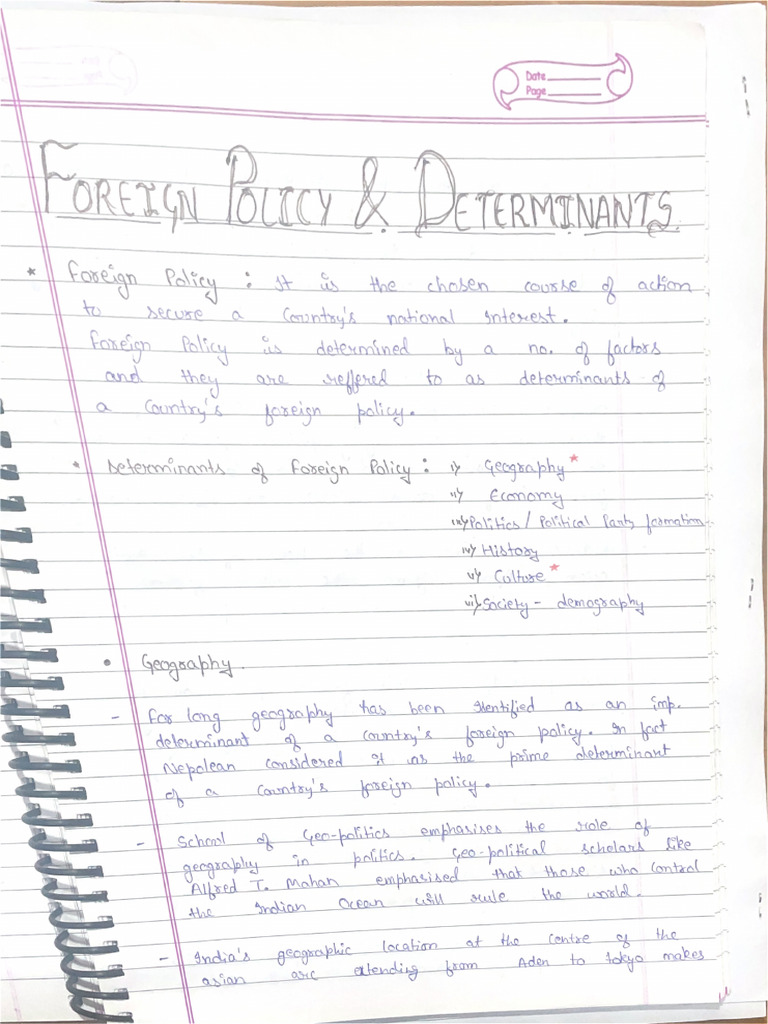 Date
Page
FOREIGN POLICY & DETERMINANTS.
* Foreign Policy : It is the chosen course of action
to secure a Country's national interest.
Foreign Policy is determined by a no. of factors
and they are reffered to as determinants of
a Country's foreign policy.
* Determinants of Foreign Policy : i) Geography *
ii) Economy
iii) Politics / Political Party formation
iv) History
v) Culture *
vi) Society - demography
• Geography.
- For long geography has been identified as an imp.
determinant of a country's foreign policy. In fact
Nepolean considered it as the prime determinant
of a Country's foreign policy.
- School of Geo-politics emphasises the role of
geography in politics. Geo-political scholars like
Alfred T. Mahan emphasised that those who control
the Indian Ocean will rule the world.
- India's geographic location at the centre of the
asian arc extending from Aden to Tokyo makes